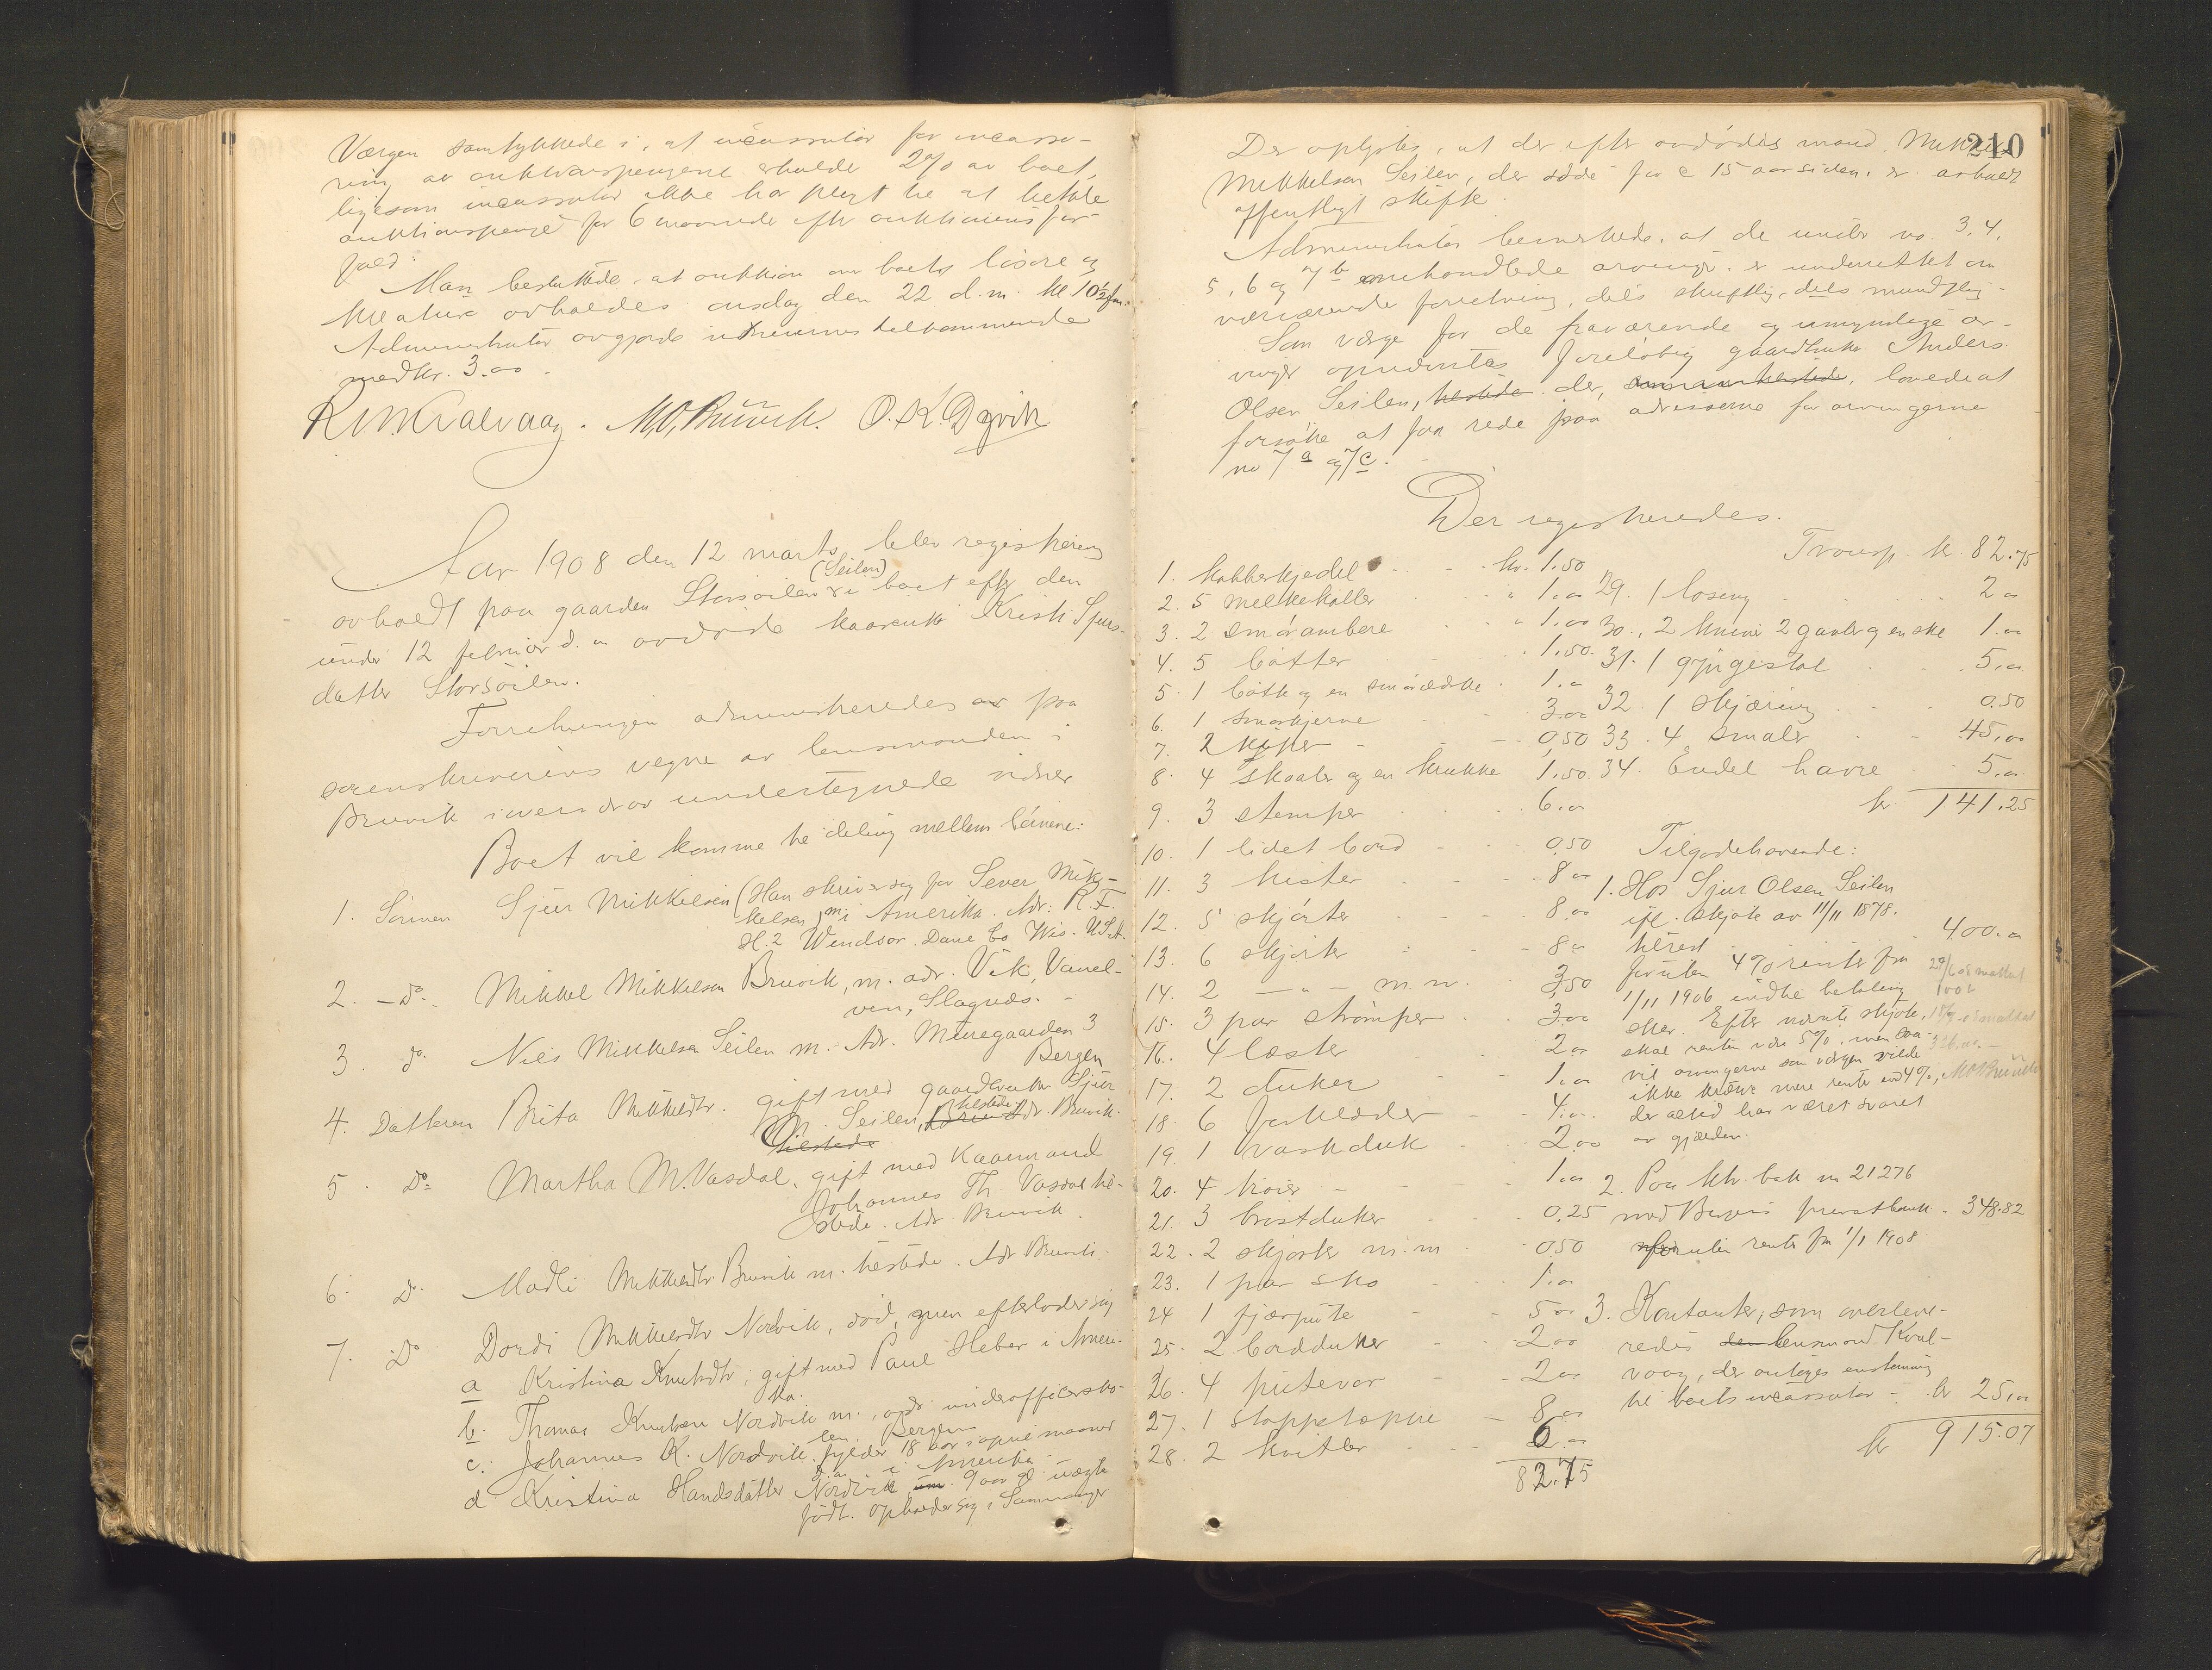 Værgen samtykkede i, at incassator for incasse-
ring av auktionspengene erholder 2% av boet,
ligesom incassator ikke har pligt til at betale
auktionspenge før 6 maaneder efter auktionens for-
fald.
Man besluttede, at auktion over boets løsøre og
kreature avholdes onsdag den 22 d.m. kl 10½ fm.
Administrator avgjorde vidnernes tilkommende
med kr. 3.00.
R. M. Kvalvaag. M. O. Bruvik. O. K. Dyvik
Aar 1908 den 12 marts blev registrering
avholdt paa gaarden Storseilen (Seilen) i boet efter den
under 12 februar d.a. avdøde kaarenke Kristi Sjurs-
datter Storseilen.
Forretningen administreredes av paa
sorenskriverens vegne av lensmanden i
Bruvik i overvær av undertegnede vidner
Boet vil komme til deling mellem børnene:
1. Sønnen Sjur Mikkelsen (Han skriver seg for Sever Mik-
kelsen) m. i Amerika. Adr: R. F.
H. 2 Windsor. Dane Co Wis. U.S.A.
2. - Do - Mikkel Mikkelsen Bruvik, m. adr. Vik, Vanel-
ven, Slagnæs. -
3. do. Nils Mikkelsen Seilen m. Adr. Muregaarden 3
Bergen
4. Datteren Brita Mikkelsdtr. gift med gaardbruker Sjur
M. Seilen, tilstede Adr. Bruvik.
tilstede
5. Do Martha M. Vasdal, gift med Kaarmand
Johannes Th. Vasdal til-
stede. Adr. Bruvik.
6. Do. Madli Mikkelsdtr. Bruvik m. tilstede. Adr Bruvik.
7. Do Dordi Mikkelsdtr Nordvik, død, men efterlader sig
a Kristina Knutsdtr, gift med Paul Heber i Ameri-
ka.
b. Thomas Knutsen Nordvik m., adr. underofficersko-
len, Bergen
c. Johannes K. Nordvik fylder 18 aar i april maaned
d.a. i Amerika
d Kristina Handsdatter Nordvik, 9 aar gl. uægte
født. Opholder sig i Samnanger
210
Der oplystes, at der efter avdødes mand Mikkel
Mikkelsen Seilen, der døde for c 15 aar siden, er avholdt
offentligt skifte.
Administrator bemerkede, at de under no. 3, 4,
5, 6 og 7 b omhandlede arvinger er underrettet om
nærværende forretning, dels skriftlig, dels mundtlig.
Som værge for de fraværende og umyndige ar-
vinger opnævntes foreløbig gaardbruker Anders
Olsen Seilen, tilstede der, lovede at
forsøke at faa rede paa adresserne for arvingerne
no 7 a og 7 c.
Der registreredes.
1. 1 kobberkjedel - - kr. 1.50
2. 5 melkekoller " 1.00
3. 2 smørambere " 1.00
4. 5 bøtter 1.50
5. 1 bøtte og en smørædske 1.00
6. 1 smørkjerne 3.00
7. 2 kiper 0,50
8. 4 skaaler og en krukke 1.50
9. 3 stemper 6.00
10. 1 lidet bord 0.50
11. 3 kister 8.00
12. 5 skjørter 8.00
13. 6 skjorter 8.00
14. 2 - " - m.m. 3,50
15. 3 par strømper 3.00
16. 4 læster 2.00
17. 2 duker 1.00
18. 6 forklæder 4.00
19. 1 vaskeduk 2.00
20. 4 huer 1.00
21. 3 brystduker 0.25
22. 2 skjorter m.m. 0.50
23. 1 par sko 1.00
24 1 fjærpute 5.00
25. 2 bordduker 2.00
26. 4 putevar 2.00
27. 1 stoppetæppe 8.00
28. 2 kvitler 6.00
82.75
Transp. kr. 82.75
29. 1 loseng 2.00
30. 2 knive 2 gavler og en ske 1.00
31. 1 gyngestol 5.00
32. 1 skjæring 0.50
33. 4 smaler 45.00
34. Endel havre 5.00
kr. 141.25
Tilgodehavende:
1. Hos Sjur Olsen Seilen
ifl. skjøte av 11/11 1878.
tilrest 400.00
foruten 4% renter fra
1/11 1906 indtil betaling
sker. Efter nævnte skjøte,
skal renten være 5%, men
vil arvingerne som værgen vilde
ikke kræve mere rente end 4%,
der altid har været svaret
av gjælden.
2. Paa ktr. bok no 21276
med Bergens privatbank - 348.82
foruten rente fra 1/1 1908
3. Kontanter, som overleve-
redes lensmand Kval-
vaag, der antages enstemmig
til boets incassator - kr 25.00
kr 915.07